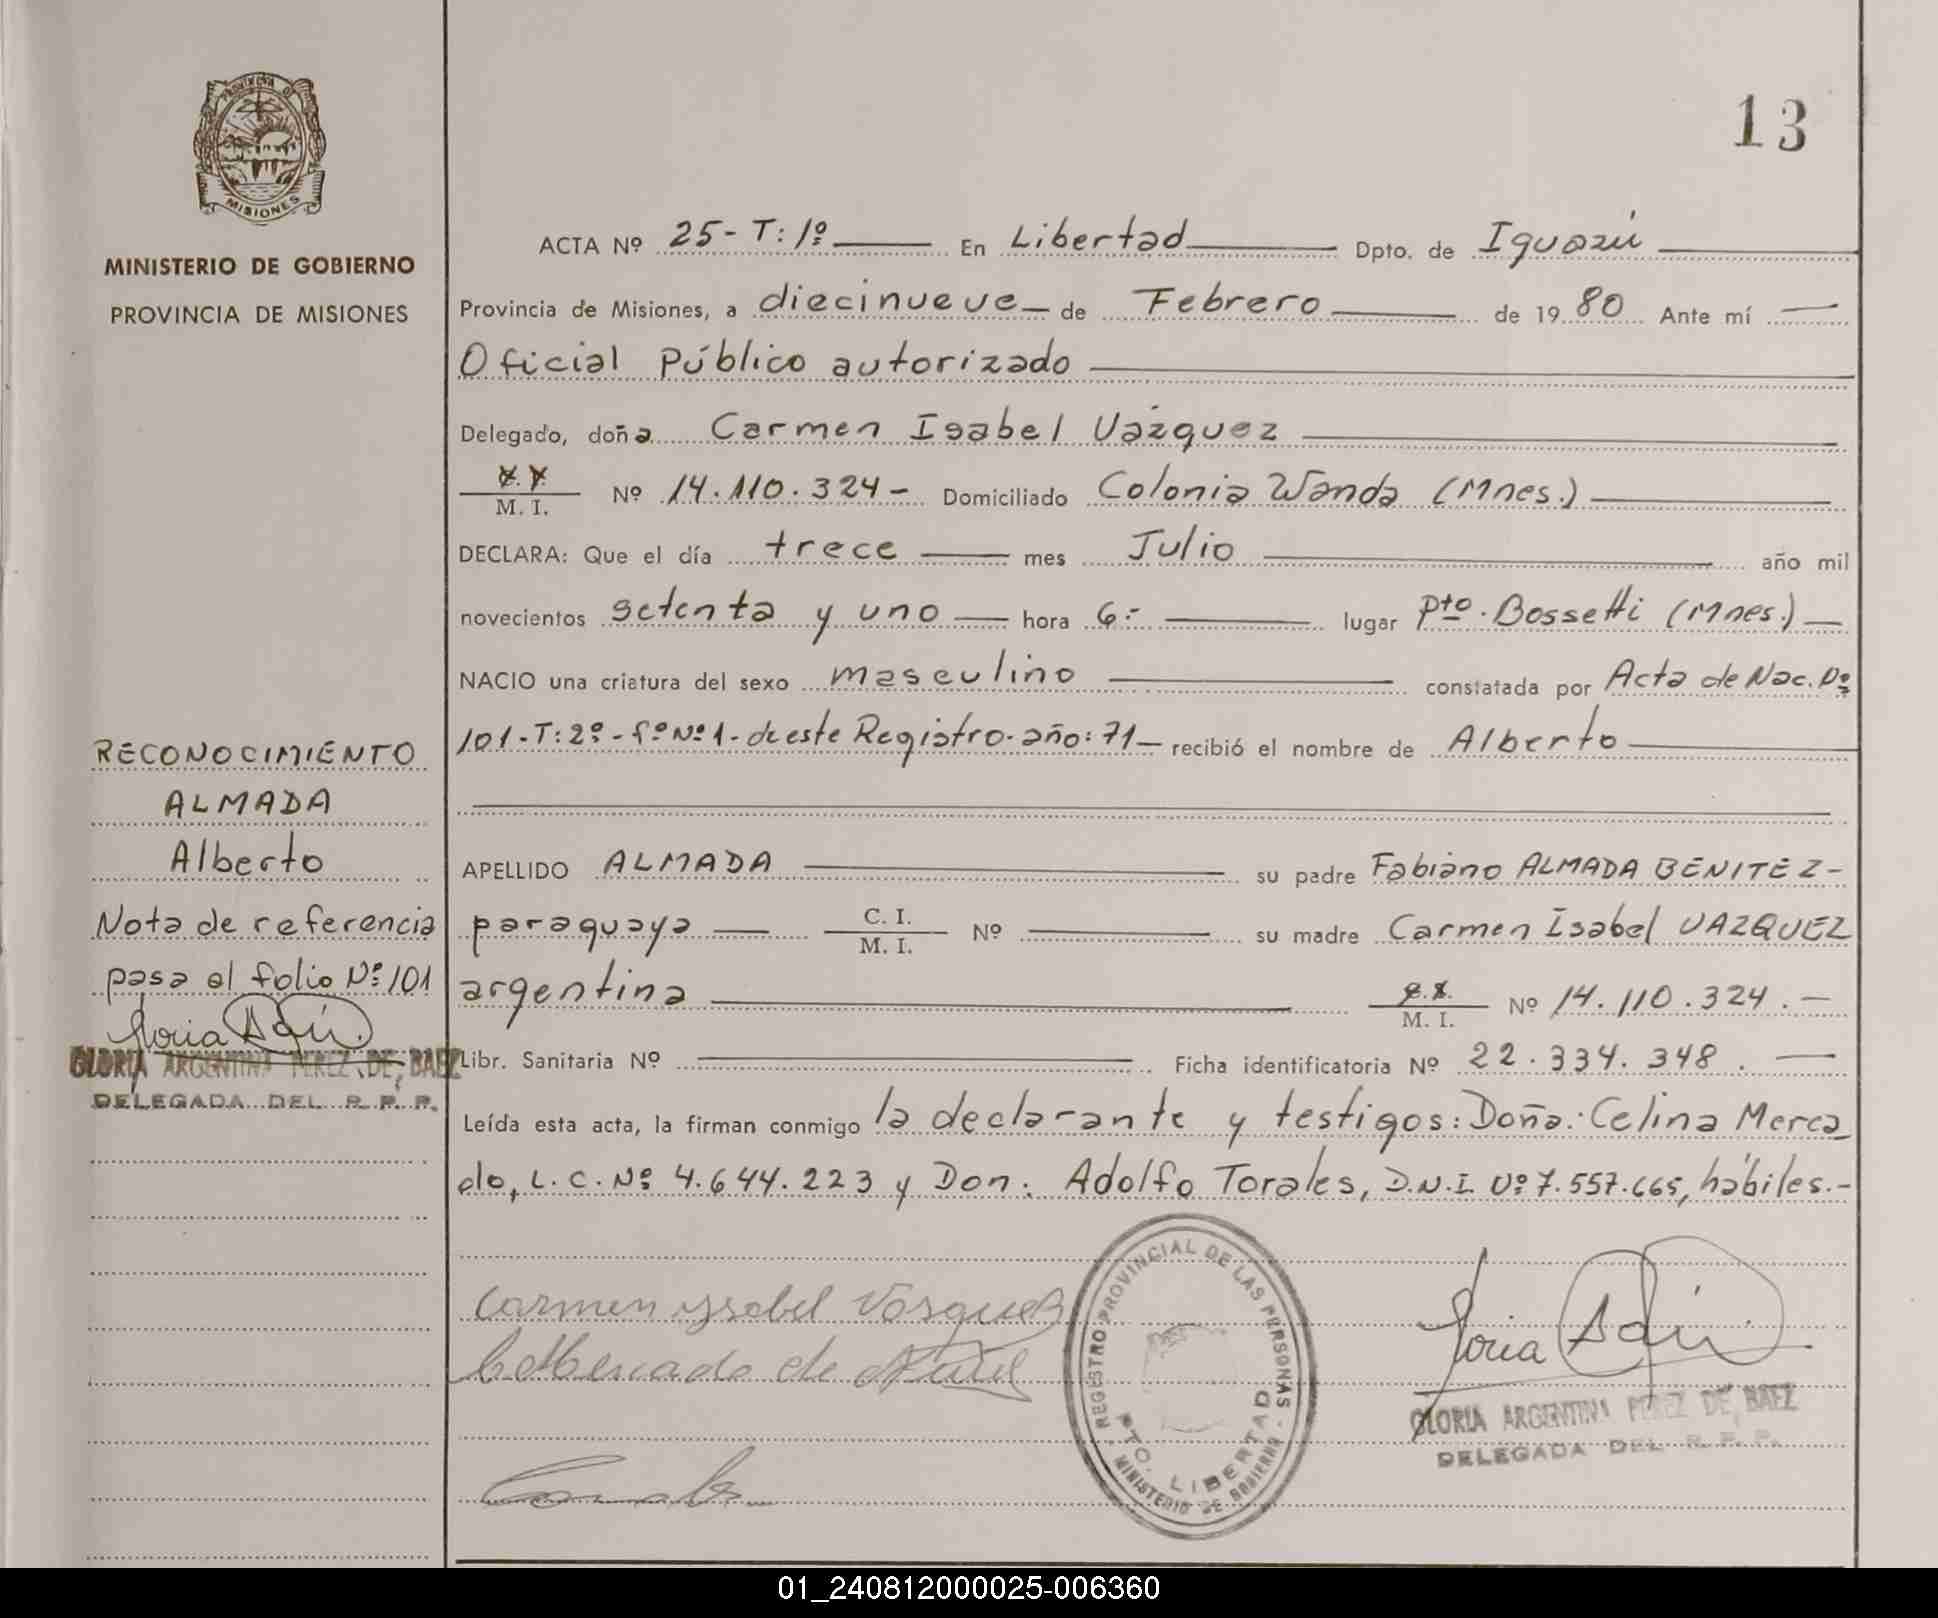 13
PROVINCIA DE
MISIONES
MINISTERIO DE GOBIERNO
PROVINCIA DE MISIONES
ACTA Nº 25-T:1º En Libertad Dpto. de Iguazú
Provincia de Misiones, a diecinueve de Febrero de 1980 Ante mí
Oficial Público autorizado
Delegado, doña Carmen Isabel Vázquez
M. I. Nº 14.110.324- Domiciliado Colonia Wanda (Mnes.)
DECLARA: Que el día trece mes Julio año mil
novecientos setenta y uno hora 6:- lugar Pto. Bossetti (Mnes.)
NACIO una criatura del sexo masculino constatada por Acta de Nac. Nº
101-T:2º-fº Nº1-de este Registro-año:71- recibió el nombre de Alberto
APELLIDO ALMADA su padre Fabiano ALMADA BENITEZ-
paraguaya C. I. M. I. Nº su madre Carmen Isabel VAZQUEZ
argentina M. I. Nº 14.110.324.-
Libr. Sanitaria Nº Ficha identificatoria Nº 22.334.348.
Leída esta acta, la firman conmigo la declarante y testigos: Doña: Celina Merca
do, L.C.Nº 4.644.223 y Don: Adolfo Torales, D.N.I. Nº 7.557.665, hábiles.-
RECONOCIMIENTO
ALMADA
Alberto
Nota de referencia
pasa al folio Nº 101
GLORIA ARGENTINA PEREZ DE BAEZ
DELEGADA DEL R. P. P.
Carmen ysabel Vasquez
REGISTRO PROVINCIAL DE LAS PERSONAS - MINISTERIO DE GOBIERNO -
PTO. LIBERTAD
GLORIA ARGENTINA PEREZ DE BAEZ
DELEGADA DEL R. P. P.
01_240812000025-006360